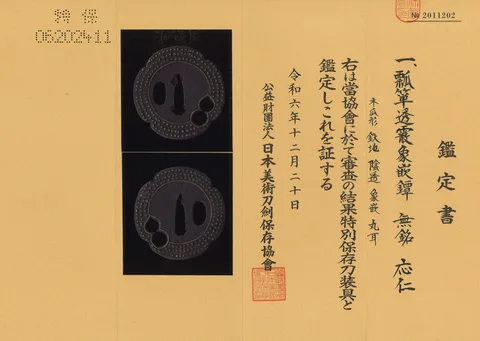 № 2011202
鑑定書
一、瓢箪透霰象嵌鐔 無銘 応仁
木瓜形 鉄地 陰透 象嵌 丸耳
右は當協會に於て審査の結果特別保存刀装具と
鑑定しこれを証する
令和六年十二月二十日
公益財團法人日本美術刀劍保存協會
特保
06202411